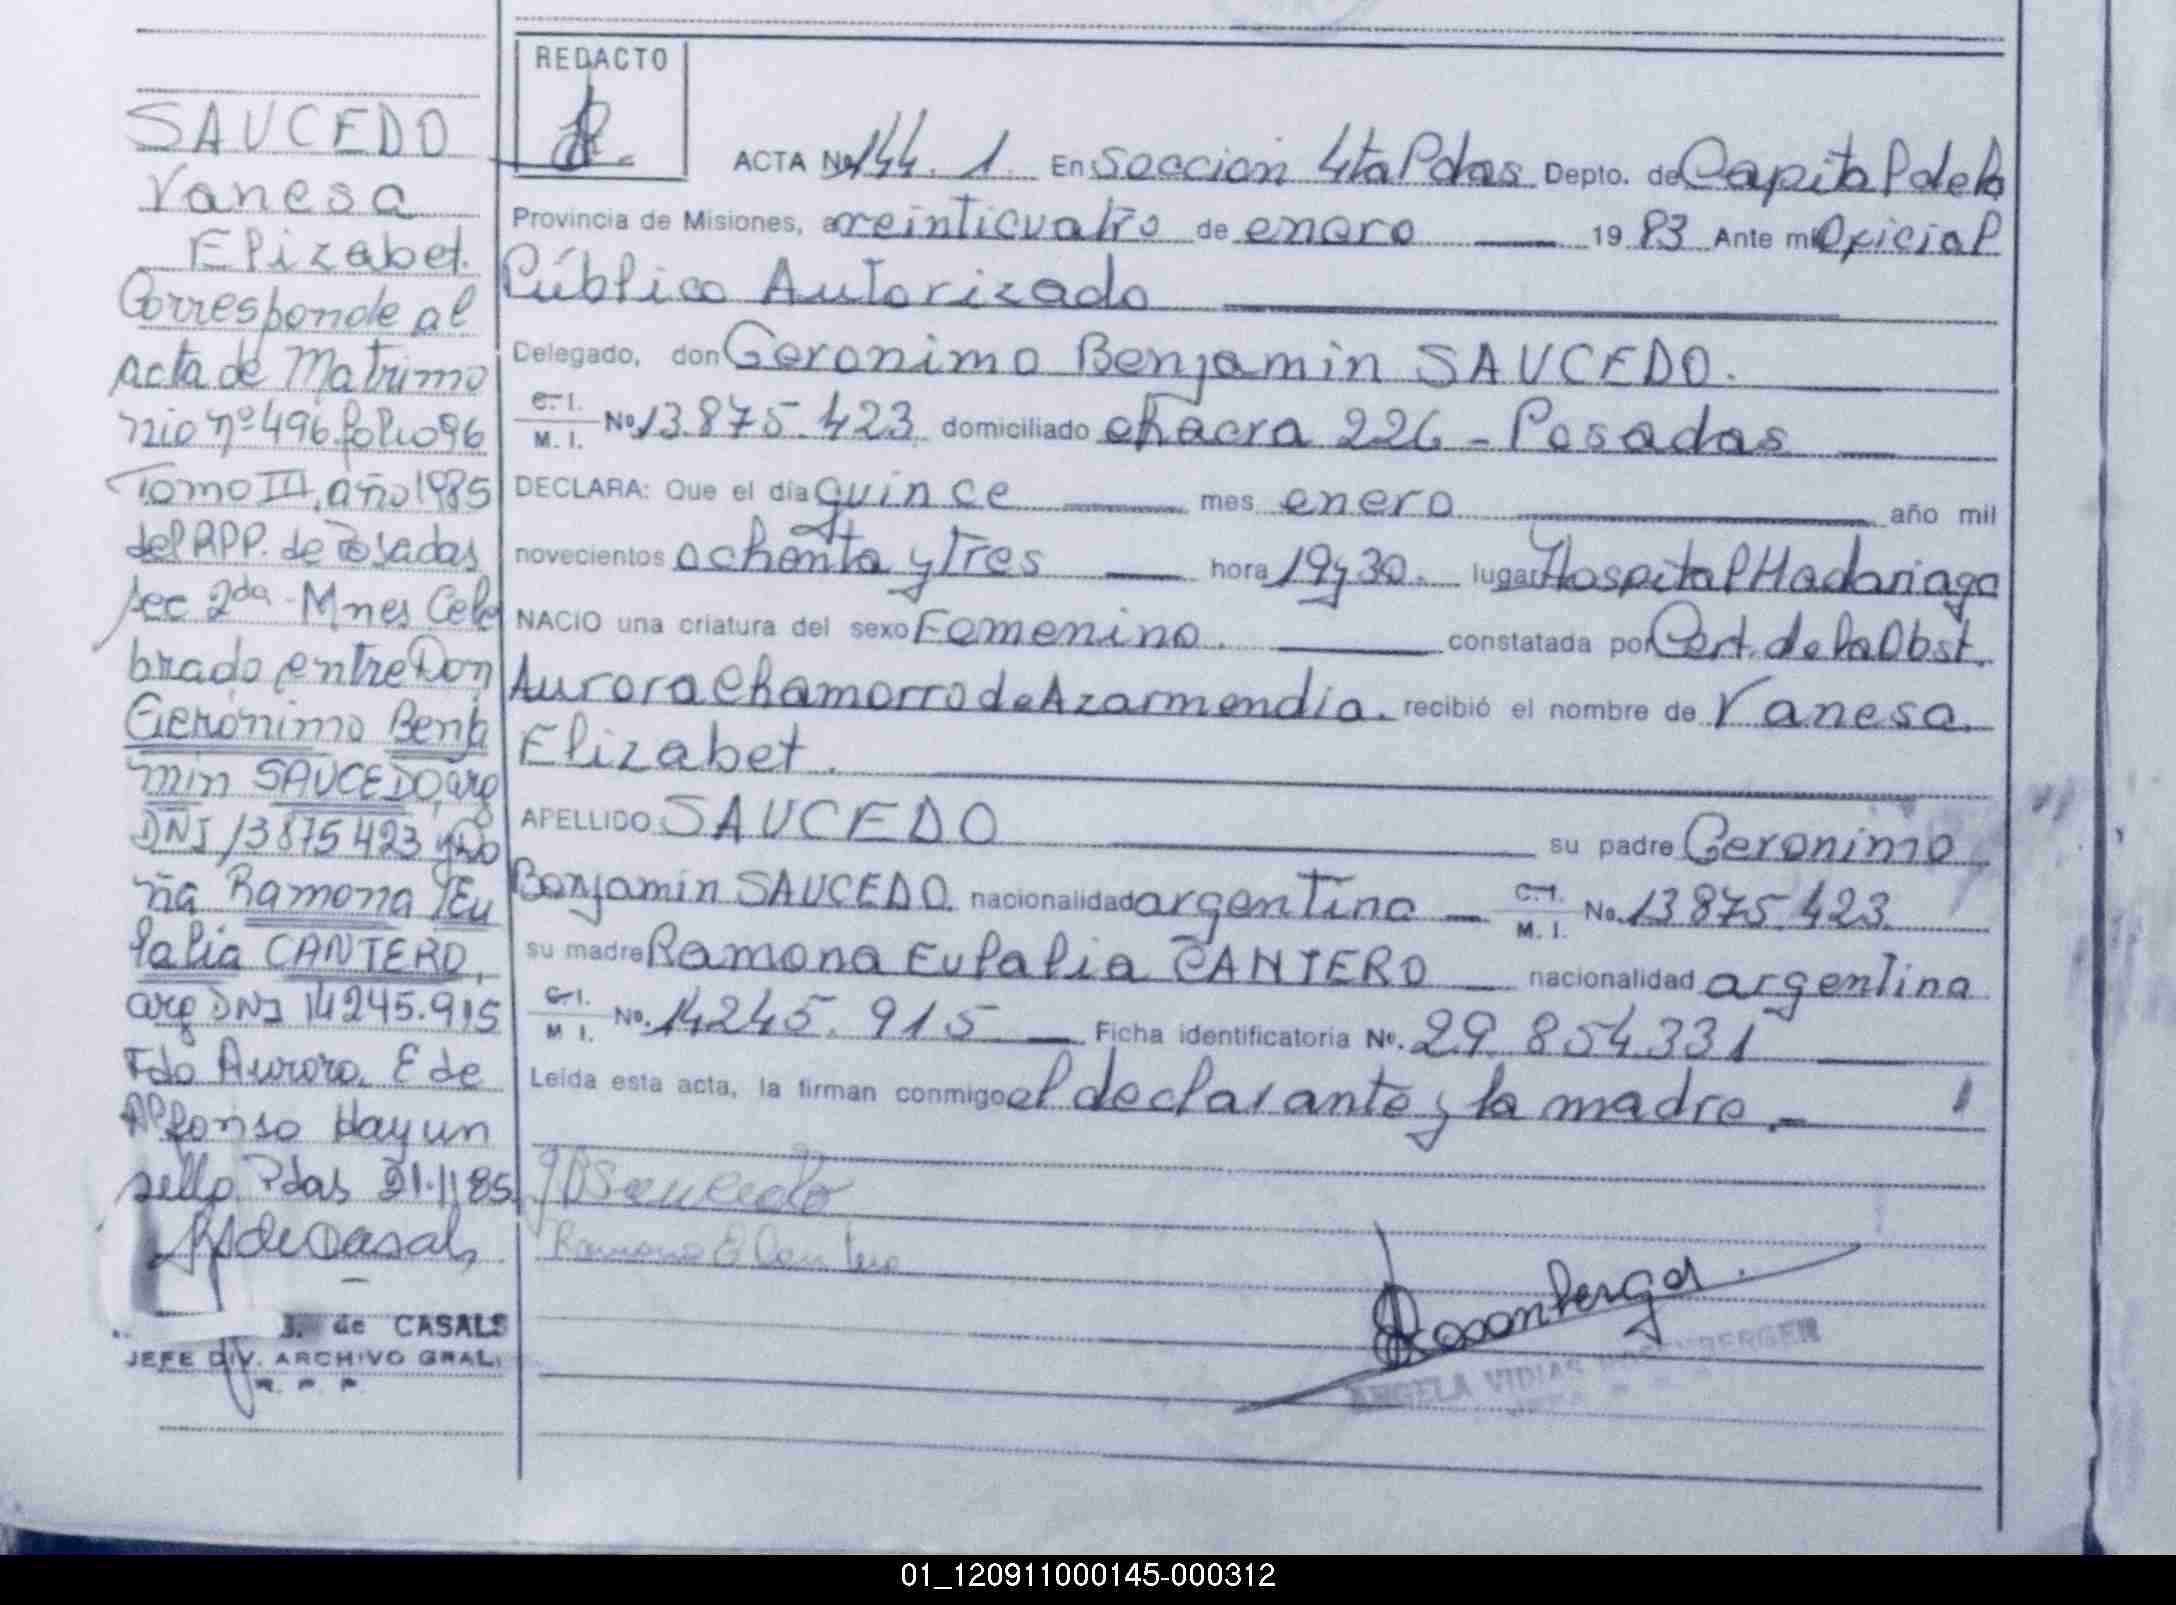 SAUCEDO
Vanesa
Elizabet.
Corresponde al
acta de Matrimo
nio nº 496 folio 96
Tomo III, año 1985
del RPP. de Posadas
sec 2da - Mnes Cele
brado entre Don
Gerónimo Benja
min SAUCEDO, arg
DNI 13875423 y Do
ña Ramona Eu
lalia CANTERO,
arg DNI 14245.915
Fdo Aurora. E de
Alfonso Hayun
sello Pdas 21.11.85
J. de CASALS
JEFE DIV. ARCHIVO GRAL.
R. P. P.
REDACTO
ACTA No 144. 1. En Seccion 4ta Pdas Depto. de Capital de la
Provincia de Misiones, a veinticuatro de enero 19 83 Ante mi Oficial
Público Autorizado
Delegado, don Geronimo Benjamin SAUCEDO.
C. I.
M. I. No 13.875.423 domiciliado chacra 226 - Posadas
DECLARA: Que el día quince mes enero año mil
novecientos ochenta y Tres hora 19 y 30. lugar Hospital Madariaga
NACIO una criatura del sexo Femenino. constatada por Cert. de la Obst.
Aurora Chamorro de Azarmendia. recibió el nombre de Vanesa
Elizabet.
APELLIDO SAUCEDO su padre Geronimo
Benjamin SAUCEDO. nacionalidad argentino C. I.
M. I. No. 13.875.423.
su madre Ramona Eulalia CANTERO nacionalidad argentina
C. I.
M. I. No. 14.245.915 Ficha identificatoria No. 29.854.331
Leída esta acta, la firman conmigo el declarante y la madre.-
Ramona E Cantero
Rosenberger
ANGELA VIDIAS ROSENBERGER
JEFA
01_120911000145-000312